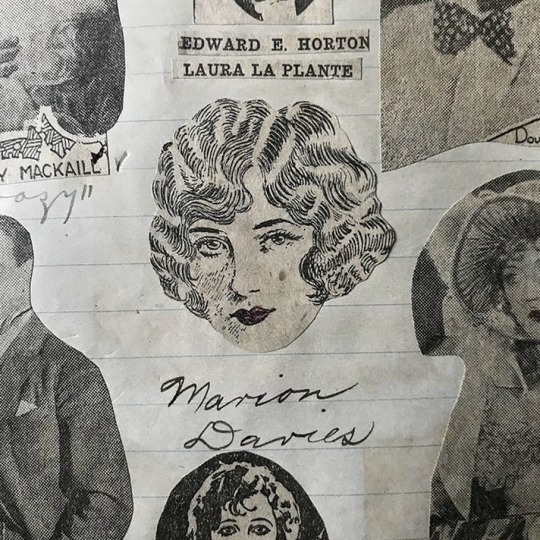 EDWARD E. HORTON
LAURA LA PLANTE
Dou
Y MACKAILL
Marion
Davies